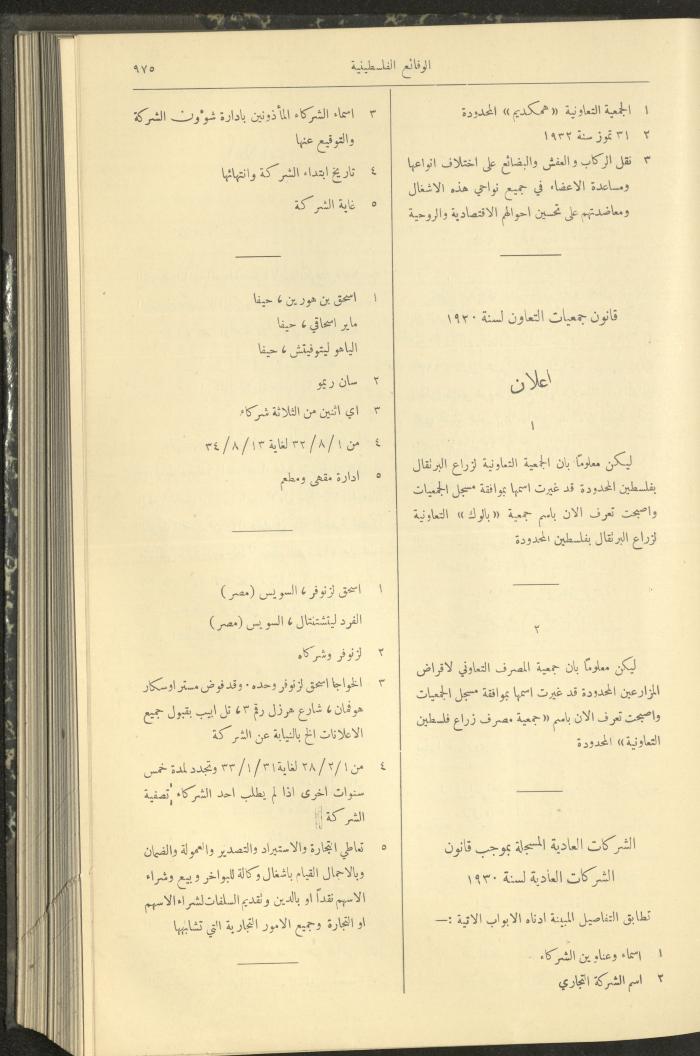 الوقائع الفلسطينية
٩٧٥
١ الجمعية التعاونية «همكديم» المحدودة
٢ ٣١ تموز سنة ١٩٣٢
٣ نقل الركاب والعفش والبضائع على اختلاف انواعها
ومساعدة الاعضاء في جميع نواحي هذه الاشغال
ومعاضدتهم على تحسين احوالهم الاقتصادية والروحية
قانون جمعيات التعاون لسنة ١٩٢٠
اعلان
١
ليكن معلومًا بان الجمعية التعاونية لزراع البرتقال
بفلسطين المحدودة قد غيرت اسمها بموافقة مسجل الجمعيات
واصبحت تعرف الان باسم جمعية «بالوك» التعاونية
لزراع البرتقال بفلسطين المحدودة
٢
ليكن معلومًا بان جمعية المصرف التعاوني لاقراض
المزارعين المحدودة قد غيرت اسمها بموافقة مسجل الجمعيات
واصبحت تعرف الان باسم «جمعية مصرف زراع فلسطين
التعاونية» المحدودة
الشركات العادية المسجلة بموجب قانون
الشركات العادية لسنة ١٩٣٠
تطابق التفاصيل المبينة ادناه الابواب الاتية :—
١ اسماء وعناوين الشركاء
٢ اسم الشركة التجاري
٣ اسماء الشركاء المأذونين بادارة شوءون الشركة
والتوقيع عنها
٤ تاريخ ابتداء الشركة وانتهائها
٥ غاية الشركة
١ اسحق بن هورين، حيفا
ماير اسحاقي، حيفا
الياهو ليتوفيتش، حيفا
٢ سان ريمو
٣ اي اثنين من الثلاثة شركاء
٤ من ٣٢/٨/١ لغاية ٣٤/٨/١٣
٥ ادارة مقهى ومطعم
١ اسحق لزنوفر، السويس (مصر)
الفرد ليتشتنتال، السويس (مصر)
٢ لزنوفر وشركاه
٣ الخواجا اسحق لزنوفر وحده. وقد فوض مستر اوسكار
هوفمان، شارع هرزل رقم ٣، تل ابيب بقبول جميع
الاعلانات الخ بالنيابة عن الشركة
٤ من ٢٨/٢/١ لغاية ٣٣/١/٣١ وتجدد لمدة خمس
سنوات اخرى اذا لم يطلب احد الشركاء تصفية
الشركة
٥ تعاطي التجارة والاستيراد والتصدير والعمولة والضمان
وبالاجمال القيام باشغال وكالة للبواخر وبيع وشراء
الاسهم نقداً او بالدين وتقديم السلفات لشراء الاسهم
او التجارة وجميع الامور التجارية التي تشابهها